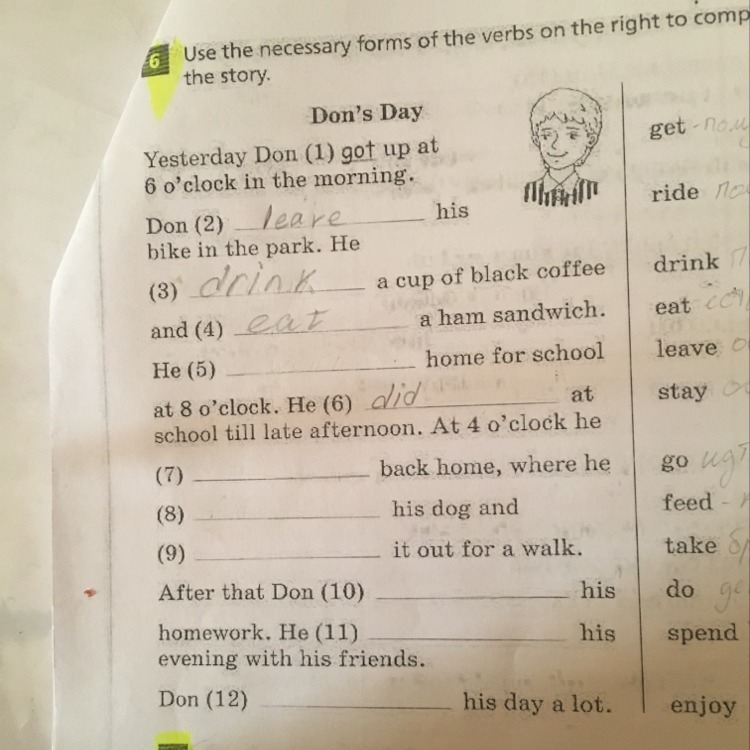 6 Use the necessary forms of the verbs on the right to comp
the story.
Don's Day
Yesterday Don (1) got up at
6 o'clock in the morning.
get
Don (2) leave his
ride
bike in the park. He
(3) drink a cup of black coffee
drink
and (4) eat a ham sandwich.
eat
He (5) ____________ home for school
leave
at 8 o'clock. He (6) did at
stay
school till late afternoon. At 4 o'clock he
(7) ____________ back home, where he
go
(8) ____________ his dog and
feed
(9) ____________ it out for a walk.
take
After that Don (10) ____________ his
do
homework. He (11) ____________ his
spend
evening with his friends.
Don (12) ____________ his day a lot.
enjoy